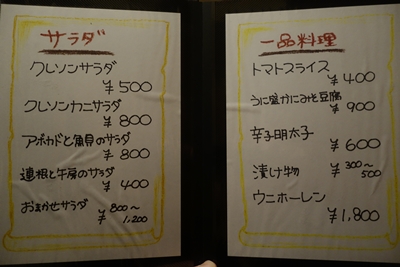 サラダ
クレソンサラダ
¥500
クレソンカニサラダ
¥800
アボカドと魚貝のサラダ
¥800
連根と牛房のサラダ
¥400
おまかせサラダ
¥800〜1,200
一品料理
トマトスライス
¥400
うに盛かにみそ豆腐
¥900
辛子明太子
¥600
漬け物
¥300〜500
ウニホーレン
¥1,800